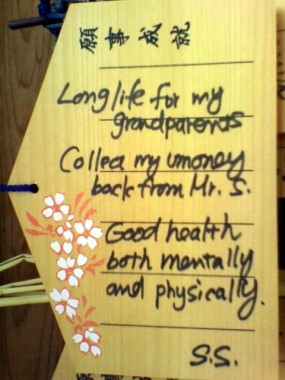 願事成就
Long life for my
grandparents
Collect my umoney
back from Mr. S.
Good health
both mentally
and physically.
S.S.